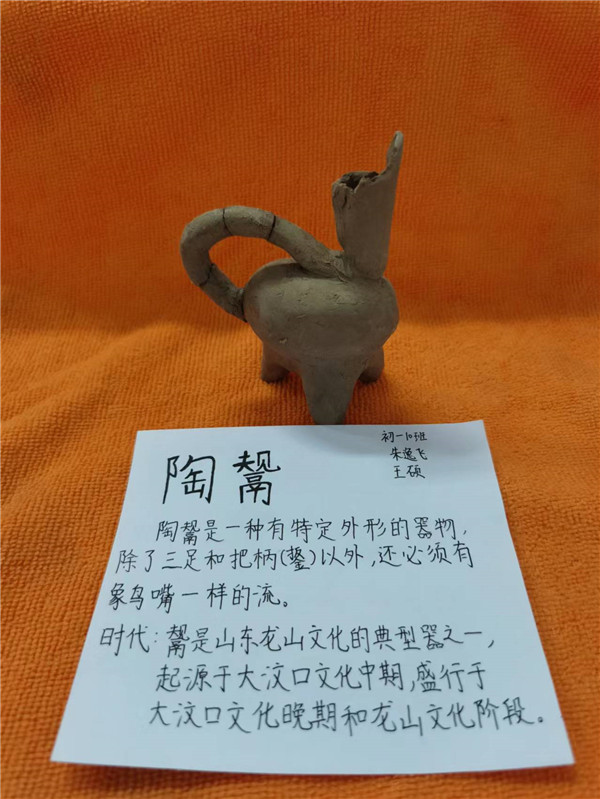 陶鬶
初一10班
朱逸飞
王硕
陶鬶是一种有特定外形的器物,
除了三足和把柄(鋬)以外,还必须有
象鸟嘴一样的流。
时代:鬶是山东龙山文化的典型器之一,
起源于大汶口文化中期,盛行于
大汶口文化晚期和龙山文化阶段。